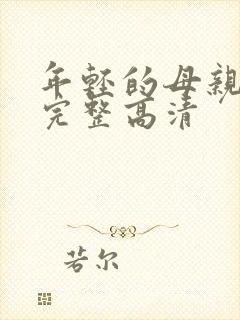 年轻的母亲
完整高清
若尔